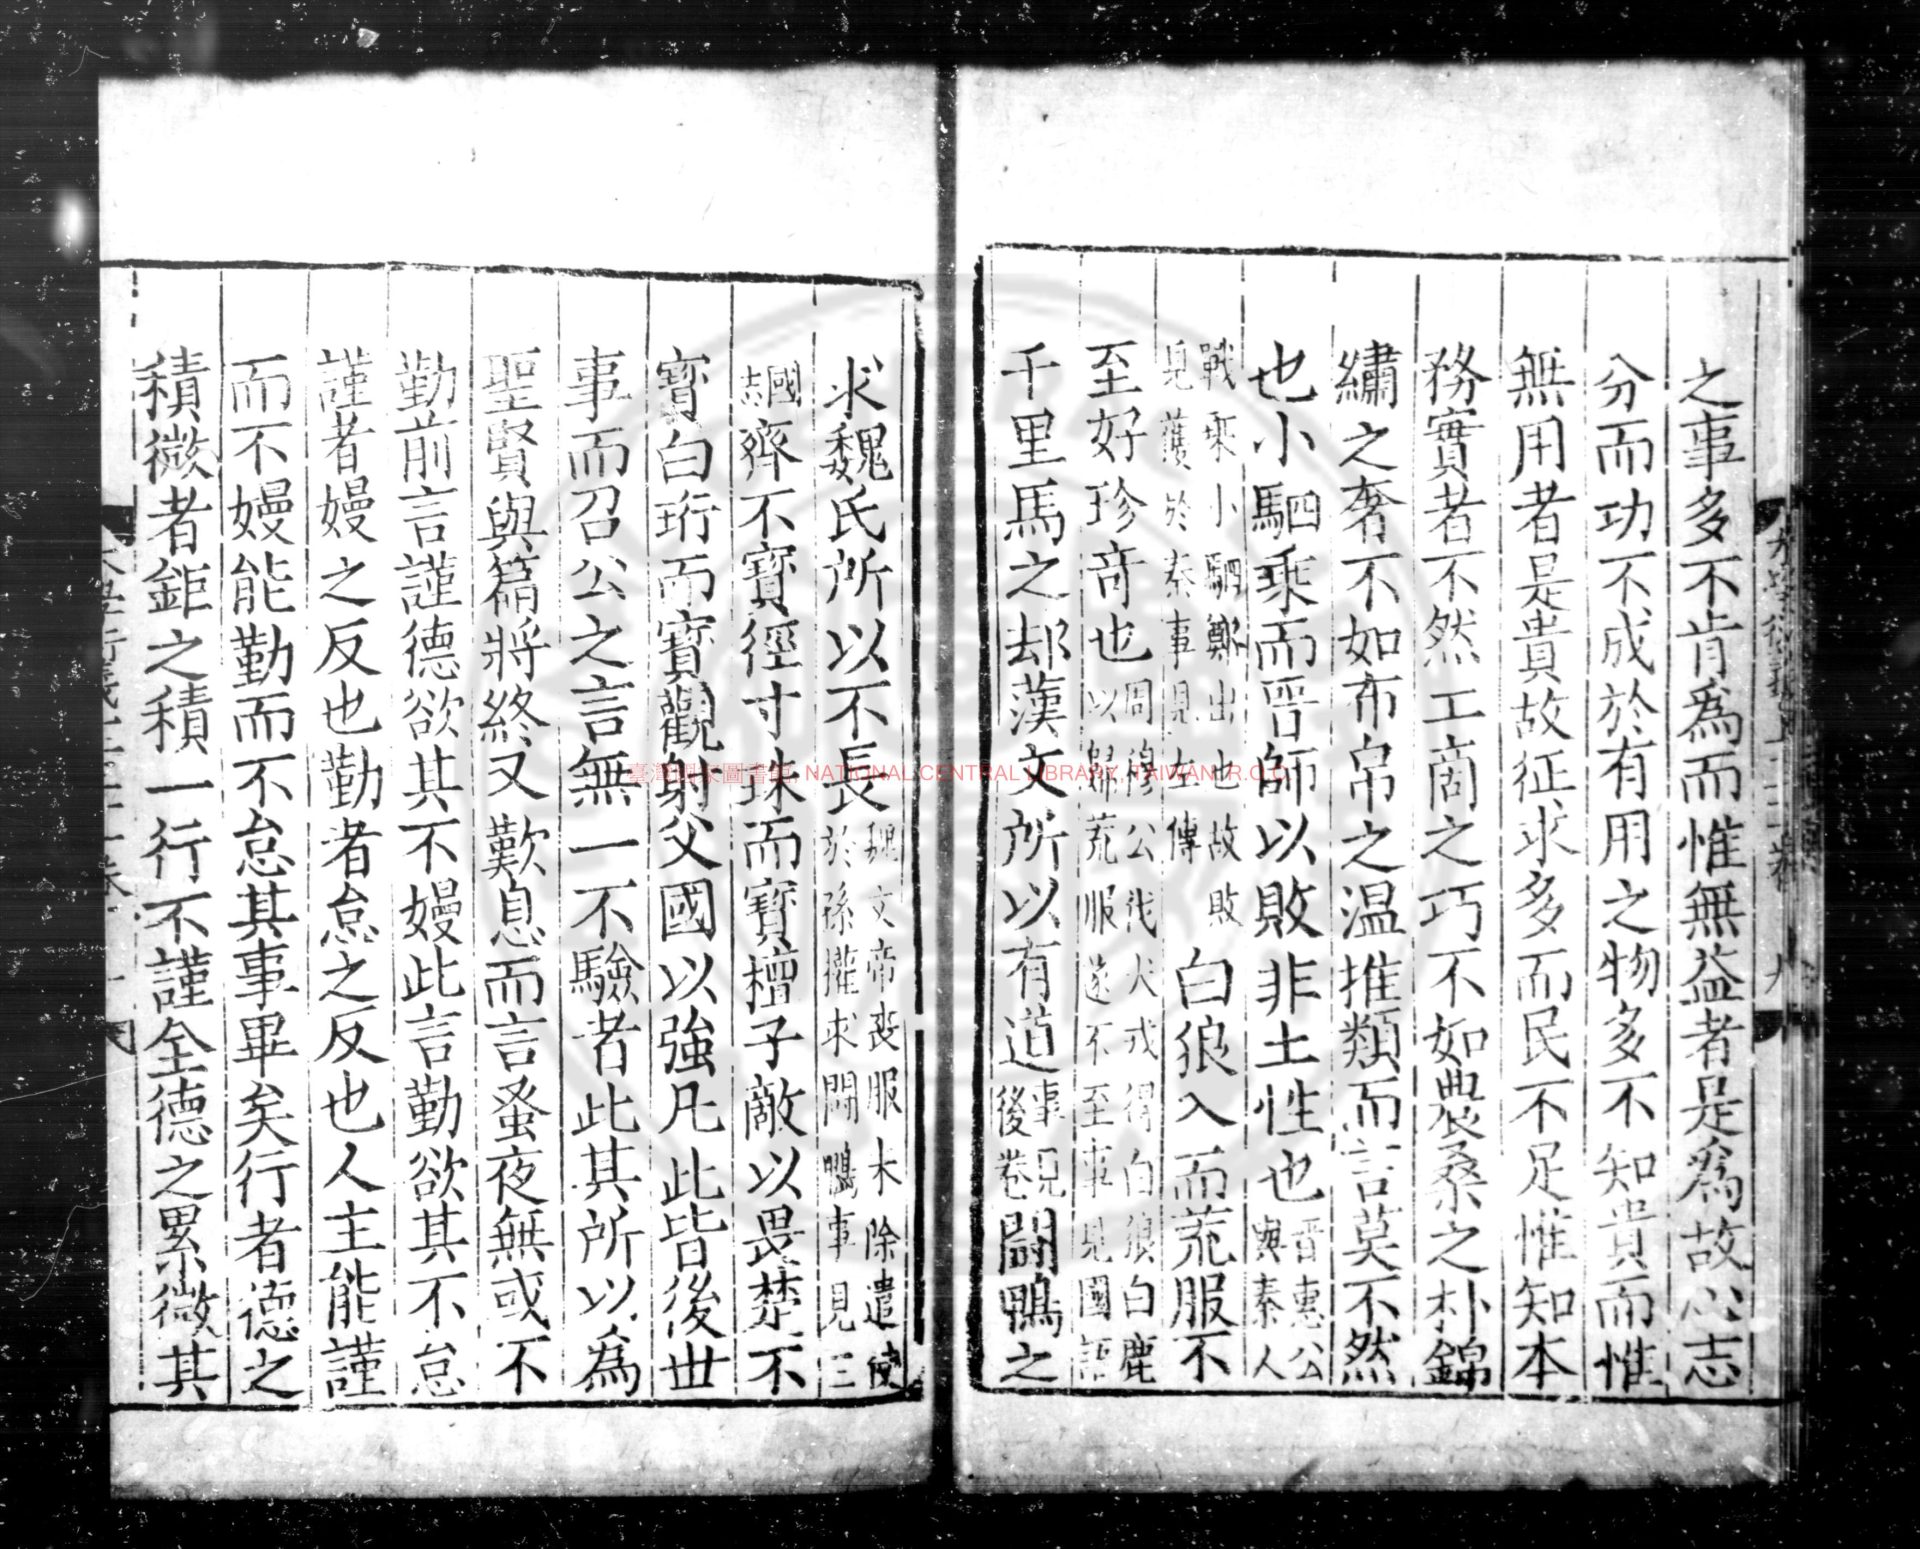 之事多不肯爲而惟無益者是爲故心志
分而功不成於有用之物多不知貴而惟
無用者是貴故征求多而民不足惟知本
務實者不然工商之巧不如農桑之朴錦
繡之奢不如布帛之温推類而言莫不然
也小駟乘而晋師以敗非土性也晋惠公與秦人
戰乘小駟鄭出也故敗見獲於秦事見左傳白狼入而荒服不
至好珍竒也周穆公伐犬戎得白狼白鹿以歸荒服遂不至事見國語
千里馬之却漢文所以有道事見後卷鬭鴨之
求魏氏所以不長魏文帝喪服未除遣使於孫權求鬭鴨事見三
國志齊不寳徑寸珠而寳檀子敵以畏楚不
寳白珩而寳觀射父國以強凡此皆後世
事而召公之言無一不驗者此其所以爲
聖賢與篇將終又歎息而言蚤夜無或不
勤前言謹德欲其不嫚此言勤欲其不怠
謹者嫚之反也勤者怠之反也人主能謹
而不嫚能勤而不怠其事畢矣行者德之
積微者鉅之積一行不謹全德之累微其
臺灣國家圖書館, NATIONAL CENTRAL LIBRARY, TAIWAN, R.O.C.